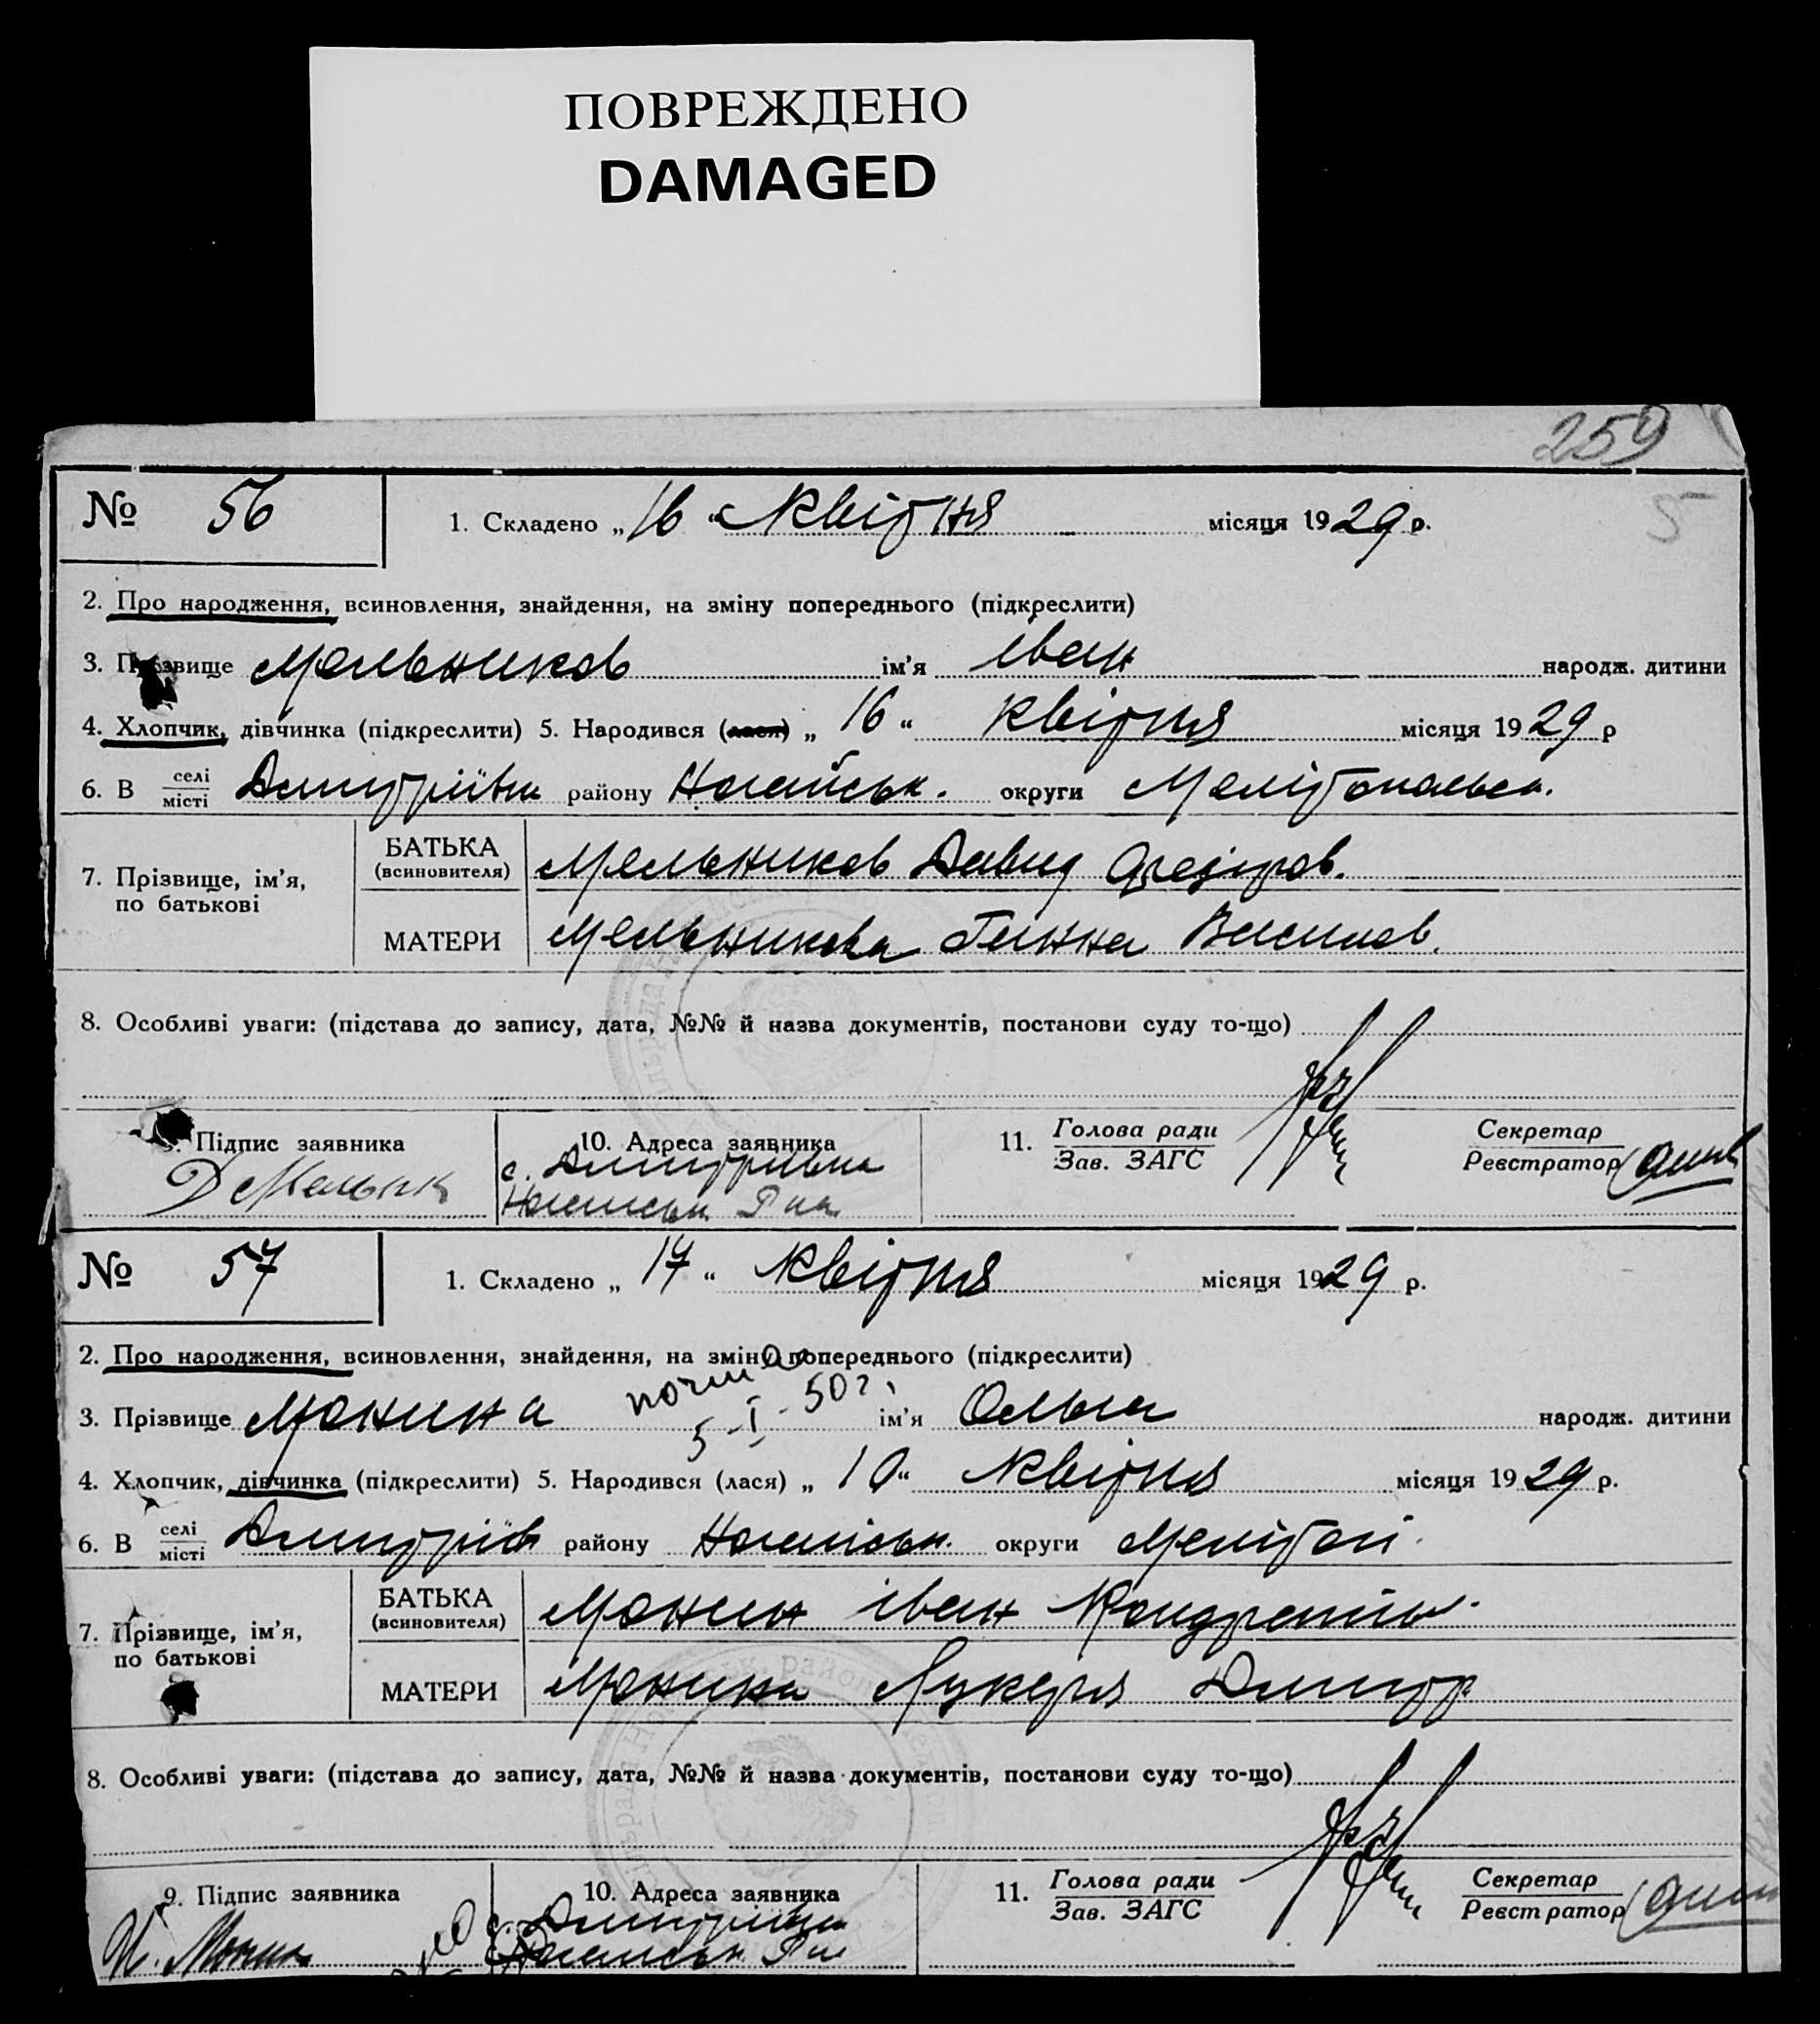 ПОВРЕЖДЕНО
DAMAGED
259
5
№ 56
1. Складено „16“ Квітня місяця 1929 р.
2. Про народження, всиновлення, знайдення, на зміну попереднього (підкреслити)
3. Прізвище Мельников ім’я Іван народж. дитини
4. Хлопчик, дівчинка (підкреслити) 5. Народився (лася) „16“ Квітня місяця 1929 р
6. В селі місті Дмитріївка району Ногайськ. округи Мелітопальск.
7. Прізвище, ім’я, по батькові
БАТЬКА (всиновителя) Мельников Давид
МАТЕРИ Мельникова Ганна Василов.
8. Особливі уваги: (підстава до запису, дата, №№ й назва документів, постанови суду то-що)
9. Підпис заявника
Д Мельник
10. Адреса заявника
с. Дмитрівка
Ногайськ Р на
11. Голова ради Зав. ЗАГС
Секретар Реєстратор
№ 57
1. Складено „17“ Квітня місяця 1929 р.
2. Про народження, всиновлення, знайдення, на зміну попереднього (підкреслити)
5-I-50 г.
3. Прізвище Монина ім’я Ольга народж. дитини
4. Хлопчик, дівчинка (підкреслити) 5. Народився (лася) „10“ Квітня місяця 1929 р.
6. В селі місті Дмитріїв району Ногайськ. округи Меліто́п.
7. Прізвище, ім’я, по батькові
БАТЬКА (всиновителя) Монин Іван Кондратів.
МАТЕРИ Монина Лукерія Дмитр
8. Особливі уваги: (підстава до запису, дата, №№ й назва документів, постанови суду то-що)
9. Підпис заявника
И. Монин
10. Адреса заявника
с. Дмитрівка
Ногайськ. Р на
11. Голова ради Зав. ЗАГС
Секретар Реєстратор